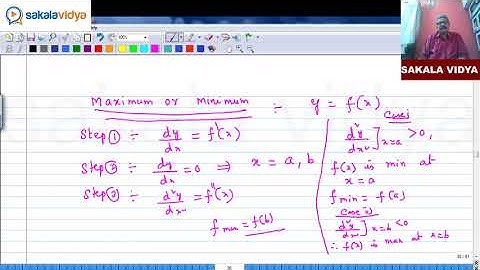 sakalavidya
100%
SAKALA VIDYA
Maximum or Minimum ÷ y = f(x)
Step ① ÷ dy/dx = f'(x)
Step ② ÷ dy/dx = 0 ⇒ x = a, b
Step ③ ÷ d²y/dx² = f''(x)
f max = f(b)
Case i)
d²y/dx²]x=a > 0,
f(x) is min at
x = a
f min = f(a)
Case ii)
d²y/dx²]x=b < 0
∴ f(x) is max at x=b